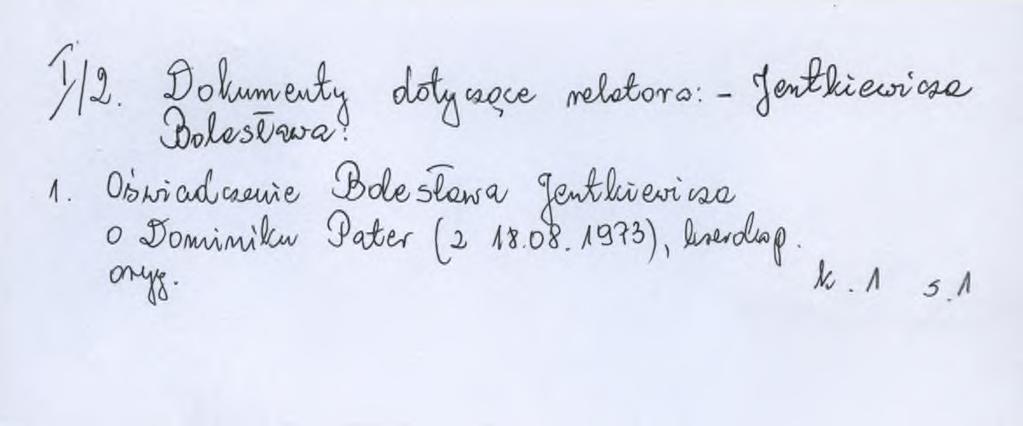 I/2. Dokumenty dotyczące relatora: - Jentkiewicza
Bolesława:
1. Oświadczenie Bolesława Jentkiewicza
o Dominiku Pater (z 18.08.1973), kserokop.
oryg.
k. 1 s. 1